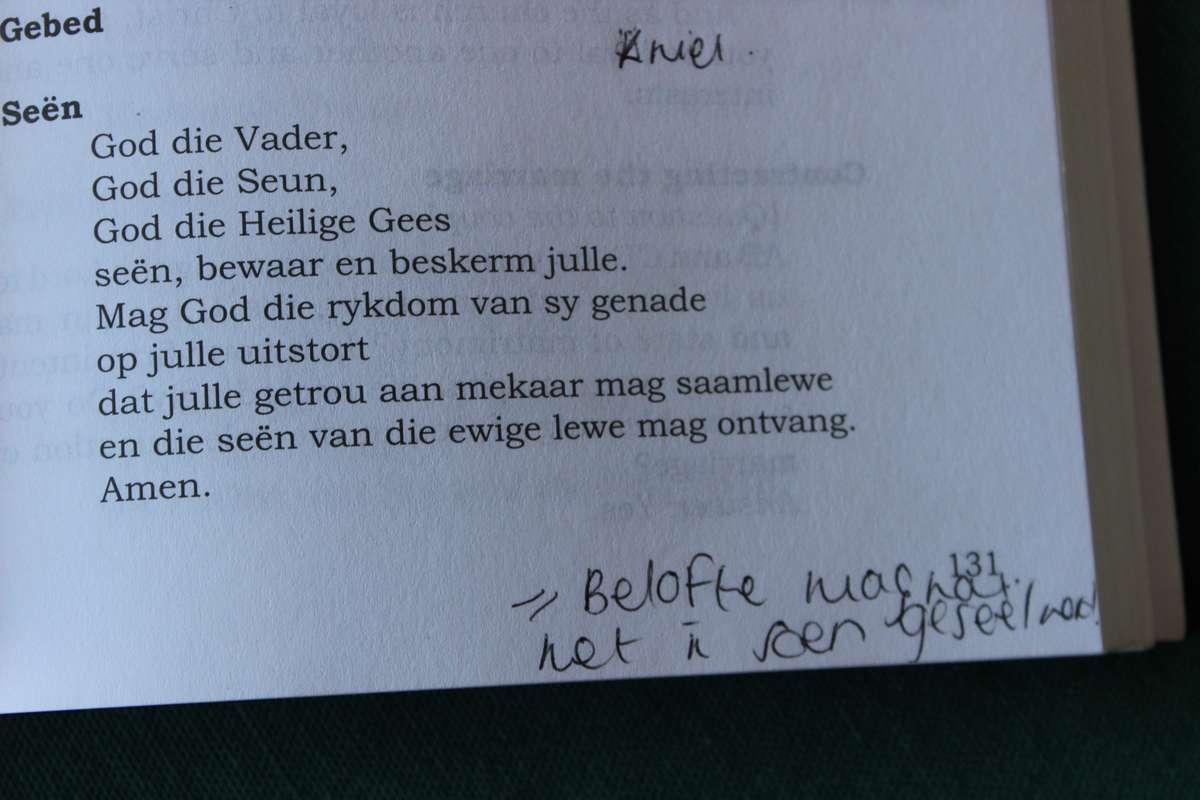 Gebed
Kniel.
Seën
God die Vader,
God die Seun,
God die Heilige Gees
seën, bewaar en beskerm julle.
Mag God die rykdom van sy genade
op julle uitstort
dat julle getrou aan mekaar mag saamlewe
en die seën van die ewige lewe mag ontvang.
Amen.
131
Belofte mag
met 'n soen geseël word!